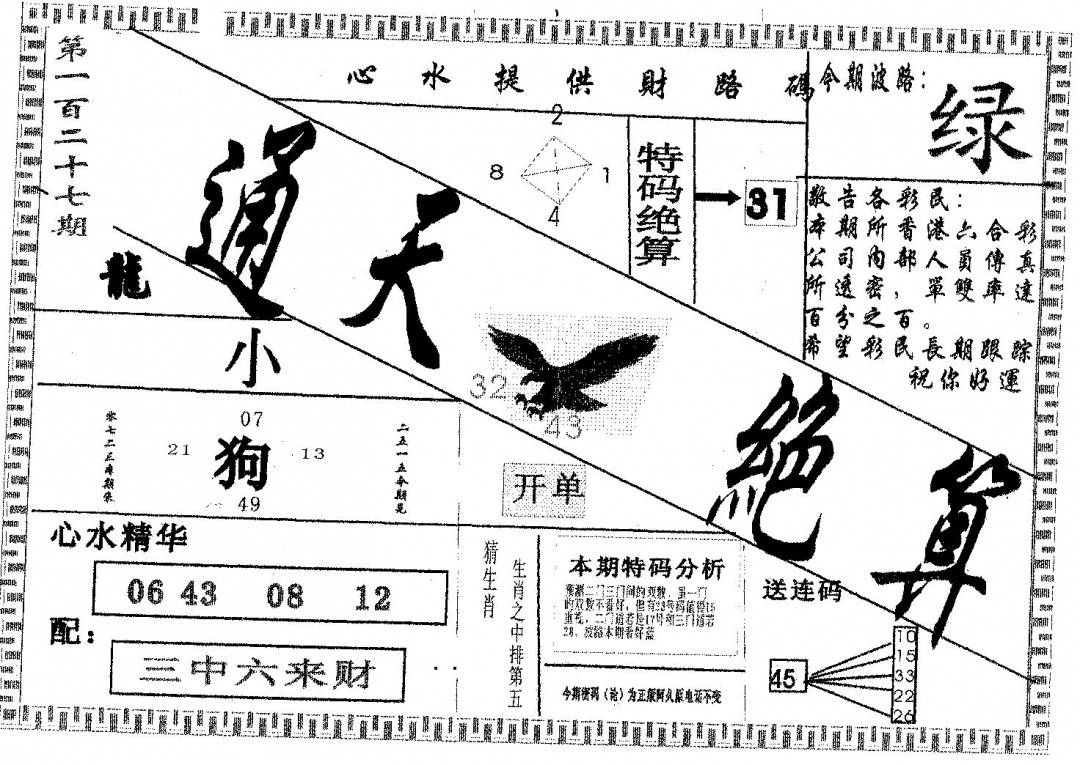 第一百二十七期
心水提供財路碼
今期波路：
绿
通天絕算
龍
小
2
8
1
4
特码绝算
31
敬告各彩民：
本期所香港六合彩
公司内部人員傳真
所透密，單雙率達
百分之百。
希望彩民長期跟踪
祝你好運
32
43
开单
07
21
狗
13
49
二五一五今期見
心水精华
06 43 08 12
配：
三中六来财
猜生肖
生肖之中排第五
本期特码分析
送连码
45
10
15
33
22
26